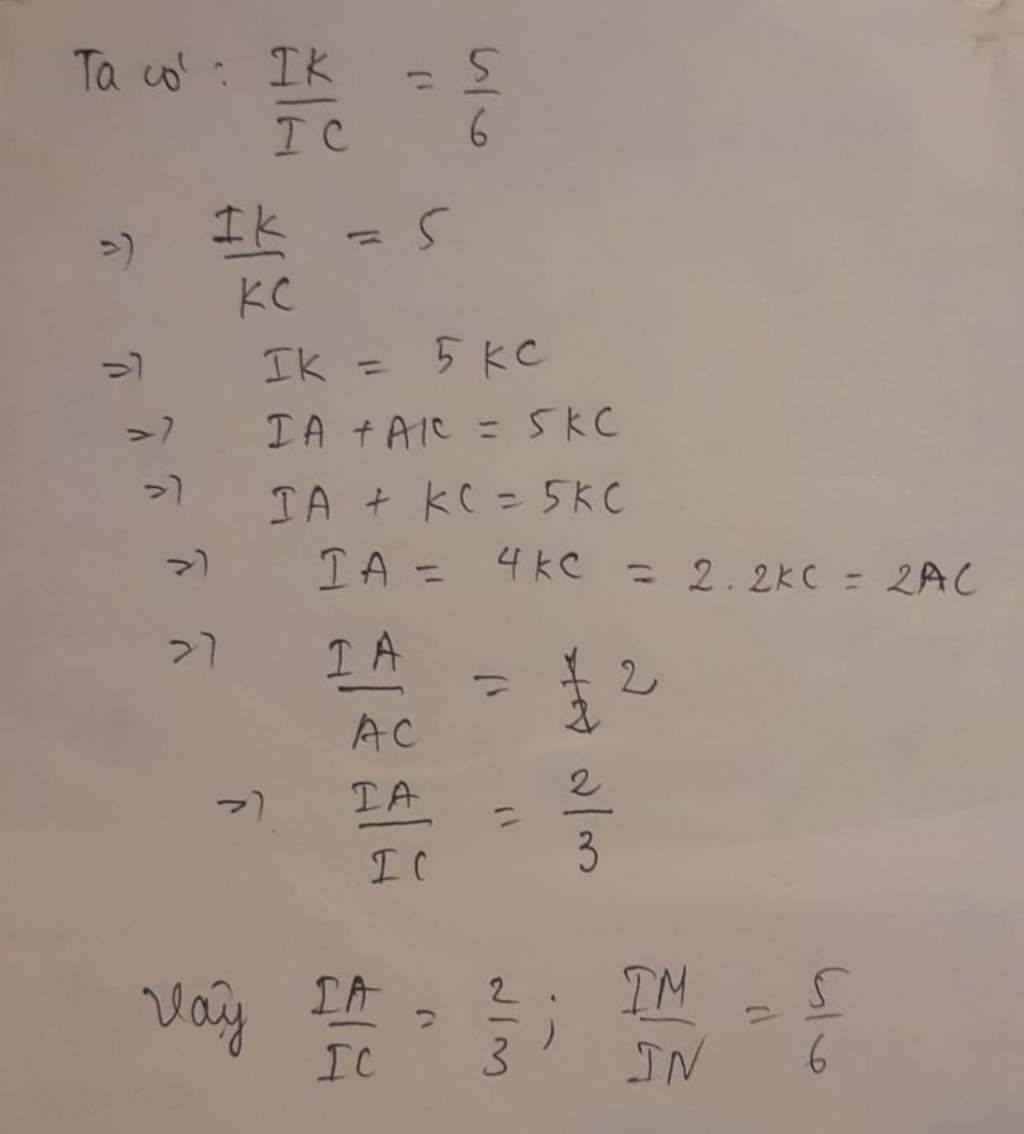 Ta có : IK/IC = 5/6
=> IK/KC = 5
=> IK = 5KC
=> IA + AK = 5KC
=> IA + KC = 5KC
=> IA = 4KC = 2.2KC = 2AC
=> IA/AC = 2
=> IA/IC = 2/3
Vậy IA/IC = 2/3 ; IM/IN = 5/6